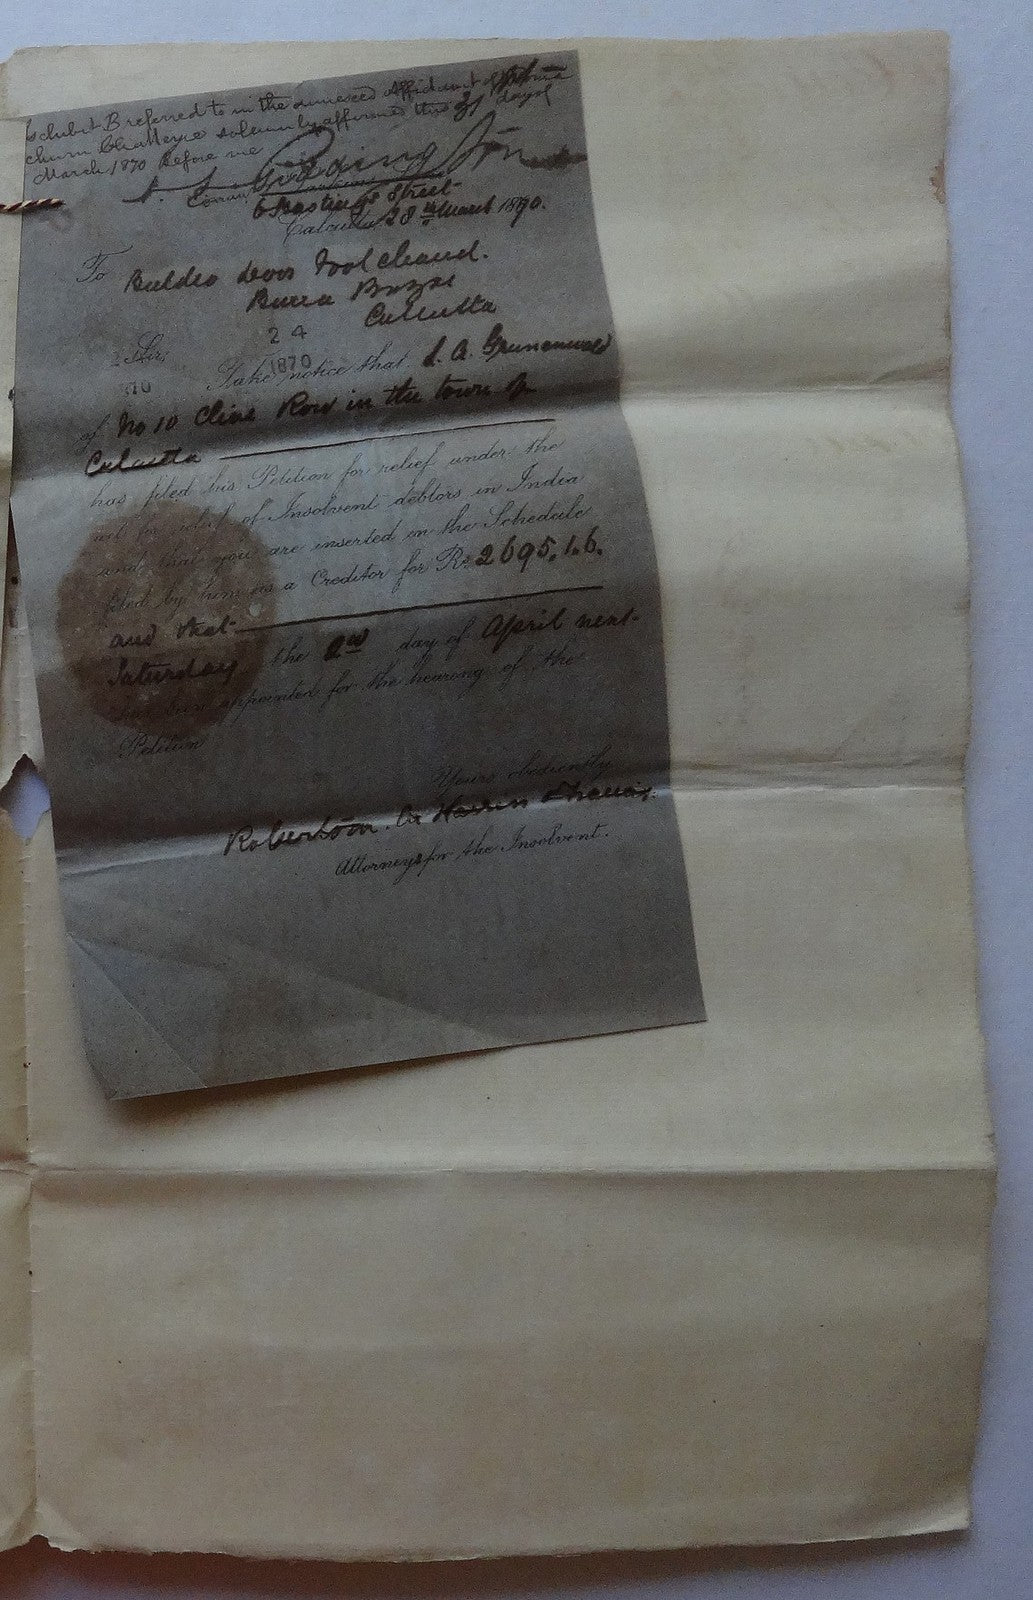 Exhibit B referred to in the annexed Affidavit of
churn Chatterjee solemnly affirmed this 31 day of
March 1870 before me
6 Hastings Street
Calcutta 28th March 1870.
To Buldeo Doss Moolchand.
Burra Bazar
Calcutta
24
Sir,
1870
Take notice that S. A. Grunenwald
of No 10 Clive Row in the town of
Calcutta
has filed his Petition for relief under the
act for relief of Insolvent debtors in India
and that you are inserted in the Schedule
filed by him as a Creditor for Rs 2695.1.6.
and that
Saturday the 2nd day of April next
has been appointed for the hearing of the
Petition
Yours obediently
Robertson. Orr Harriss & Francis.
Attorneys for the Insolvent.